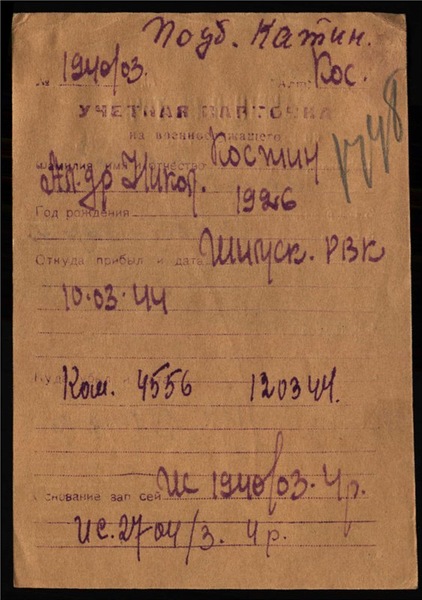 Подб. Катин.
№ 1940/03. Кос.
УЧЕТНАЯ КАРТОЧКА
на военнослужащего
фамилия имя отчество Костин
Ал-др Никол.
Год рождения 1926
Откуда прибыл и дата Шипуск. РВК
10.03.44
Ком. 4556 12 03 44.
Основание зап сей ис 1940/03. 4р.
ис. 27-04/3. 4р.